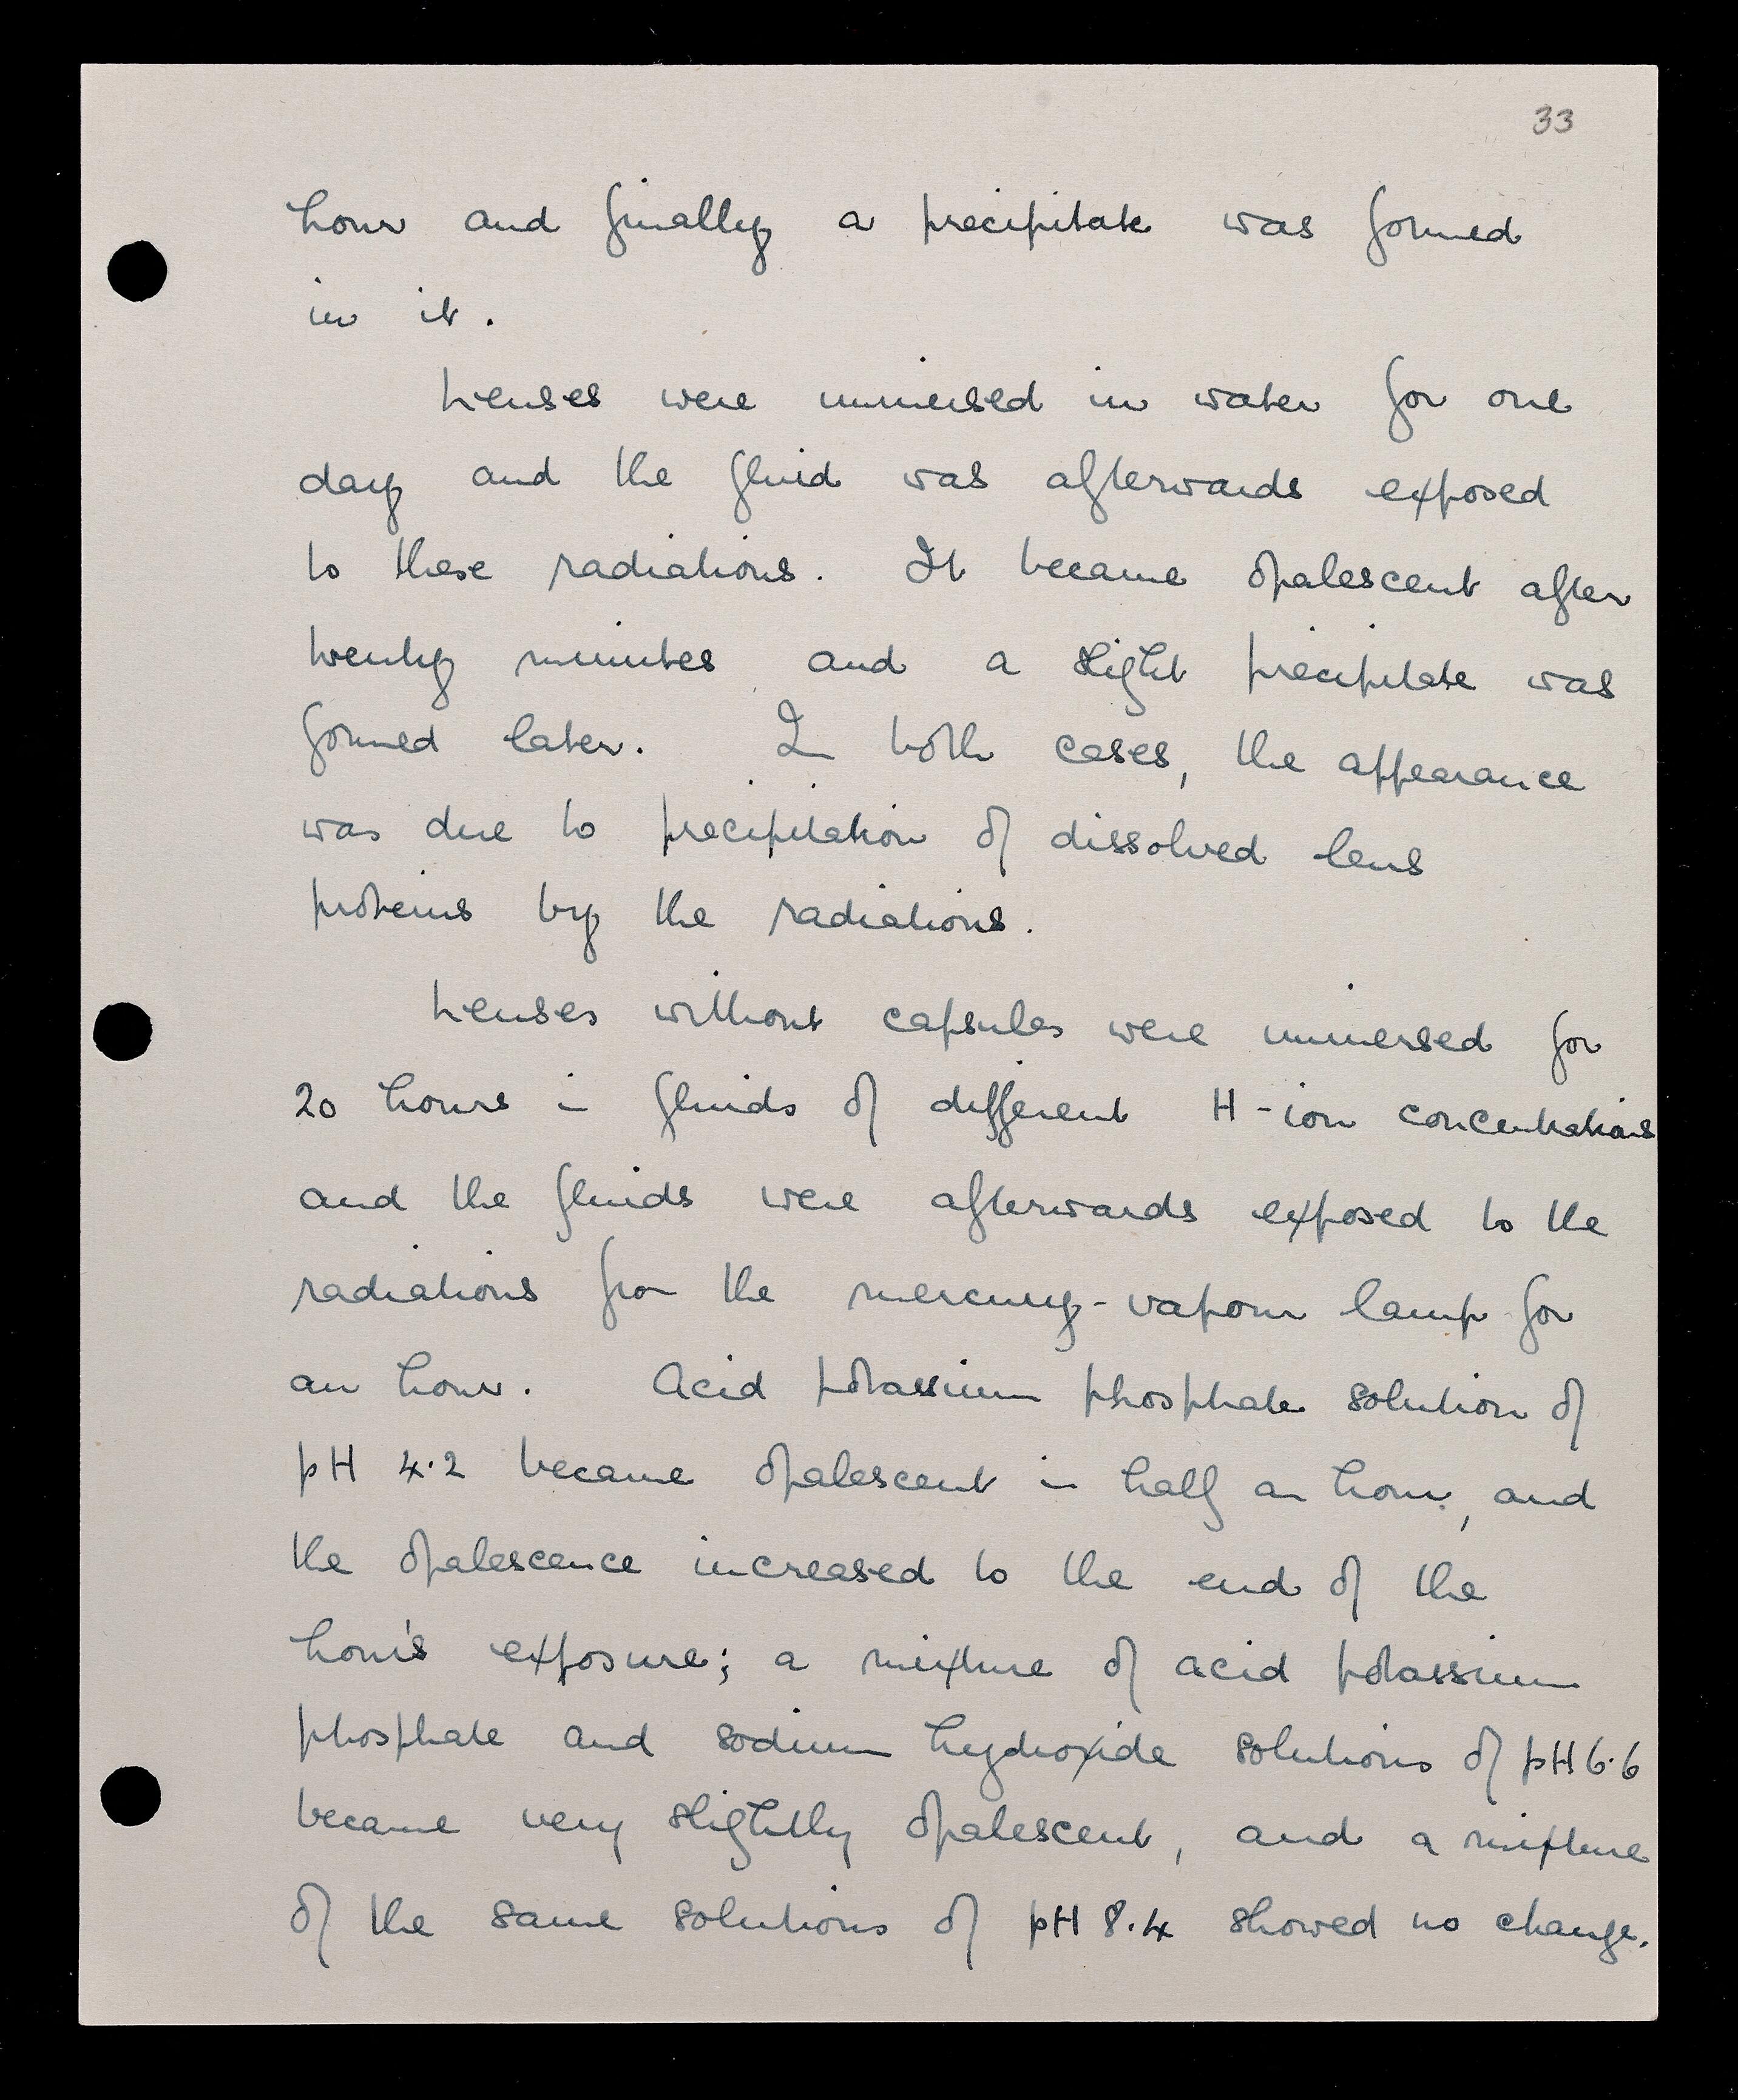 33
hour and finally a precipitate was formed
in it.
Lenses were immersed in water for one
day and the fluid was afterwards exposed
to these radiations. It became opalescent after
twenty minutes and a slight precipitate was
formed later. In both cases, the appearance
was due to precipitation of dissolved lens
proteins by the radiations.
Lenses without capsules were immersed for
20 hours in fluids of different H-ion concentrations
and the fluids were afterwards exposed to the
radiations from the mercury-vapour lamp for
an hour. Acid potassium phosphate solution of
pH 4.2 became opalescent in half an hour, and
the opalescence increased to the end of the
hour's exposure; a mixture of acid potassium
phosphate and sodium hydroxide solutions of pH 6.6
became very slightly opalescent, and a mixture
of the same solutions of pH 8.4 showed no change.